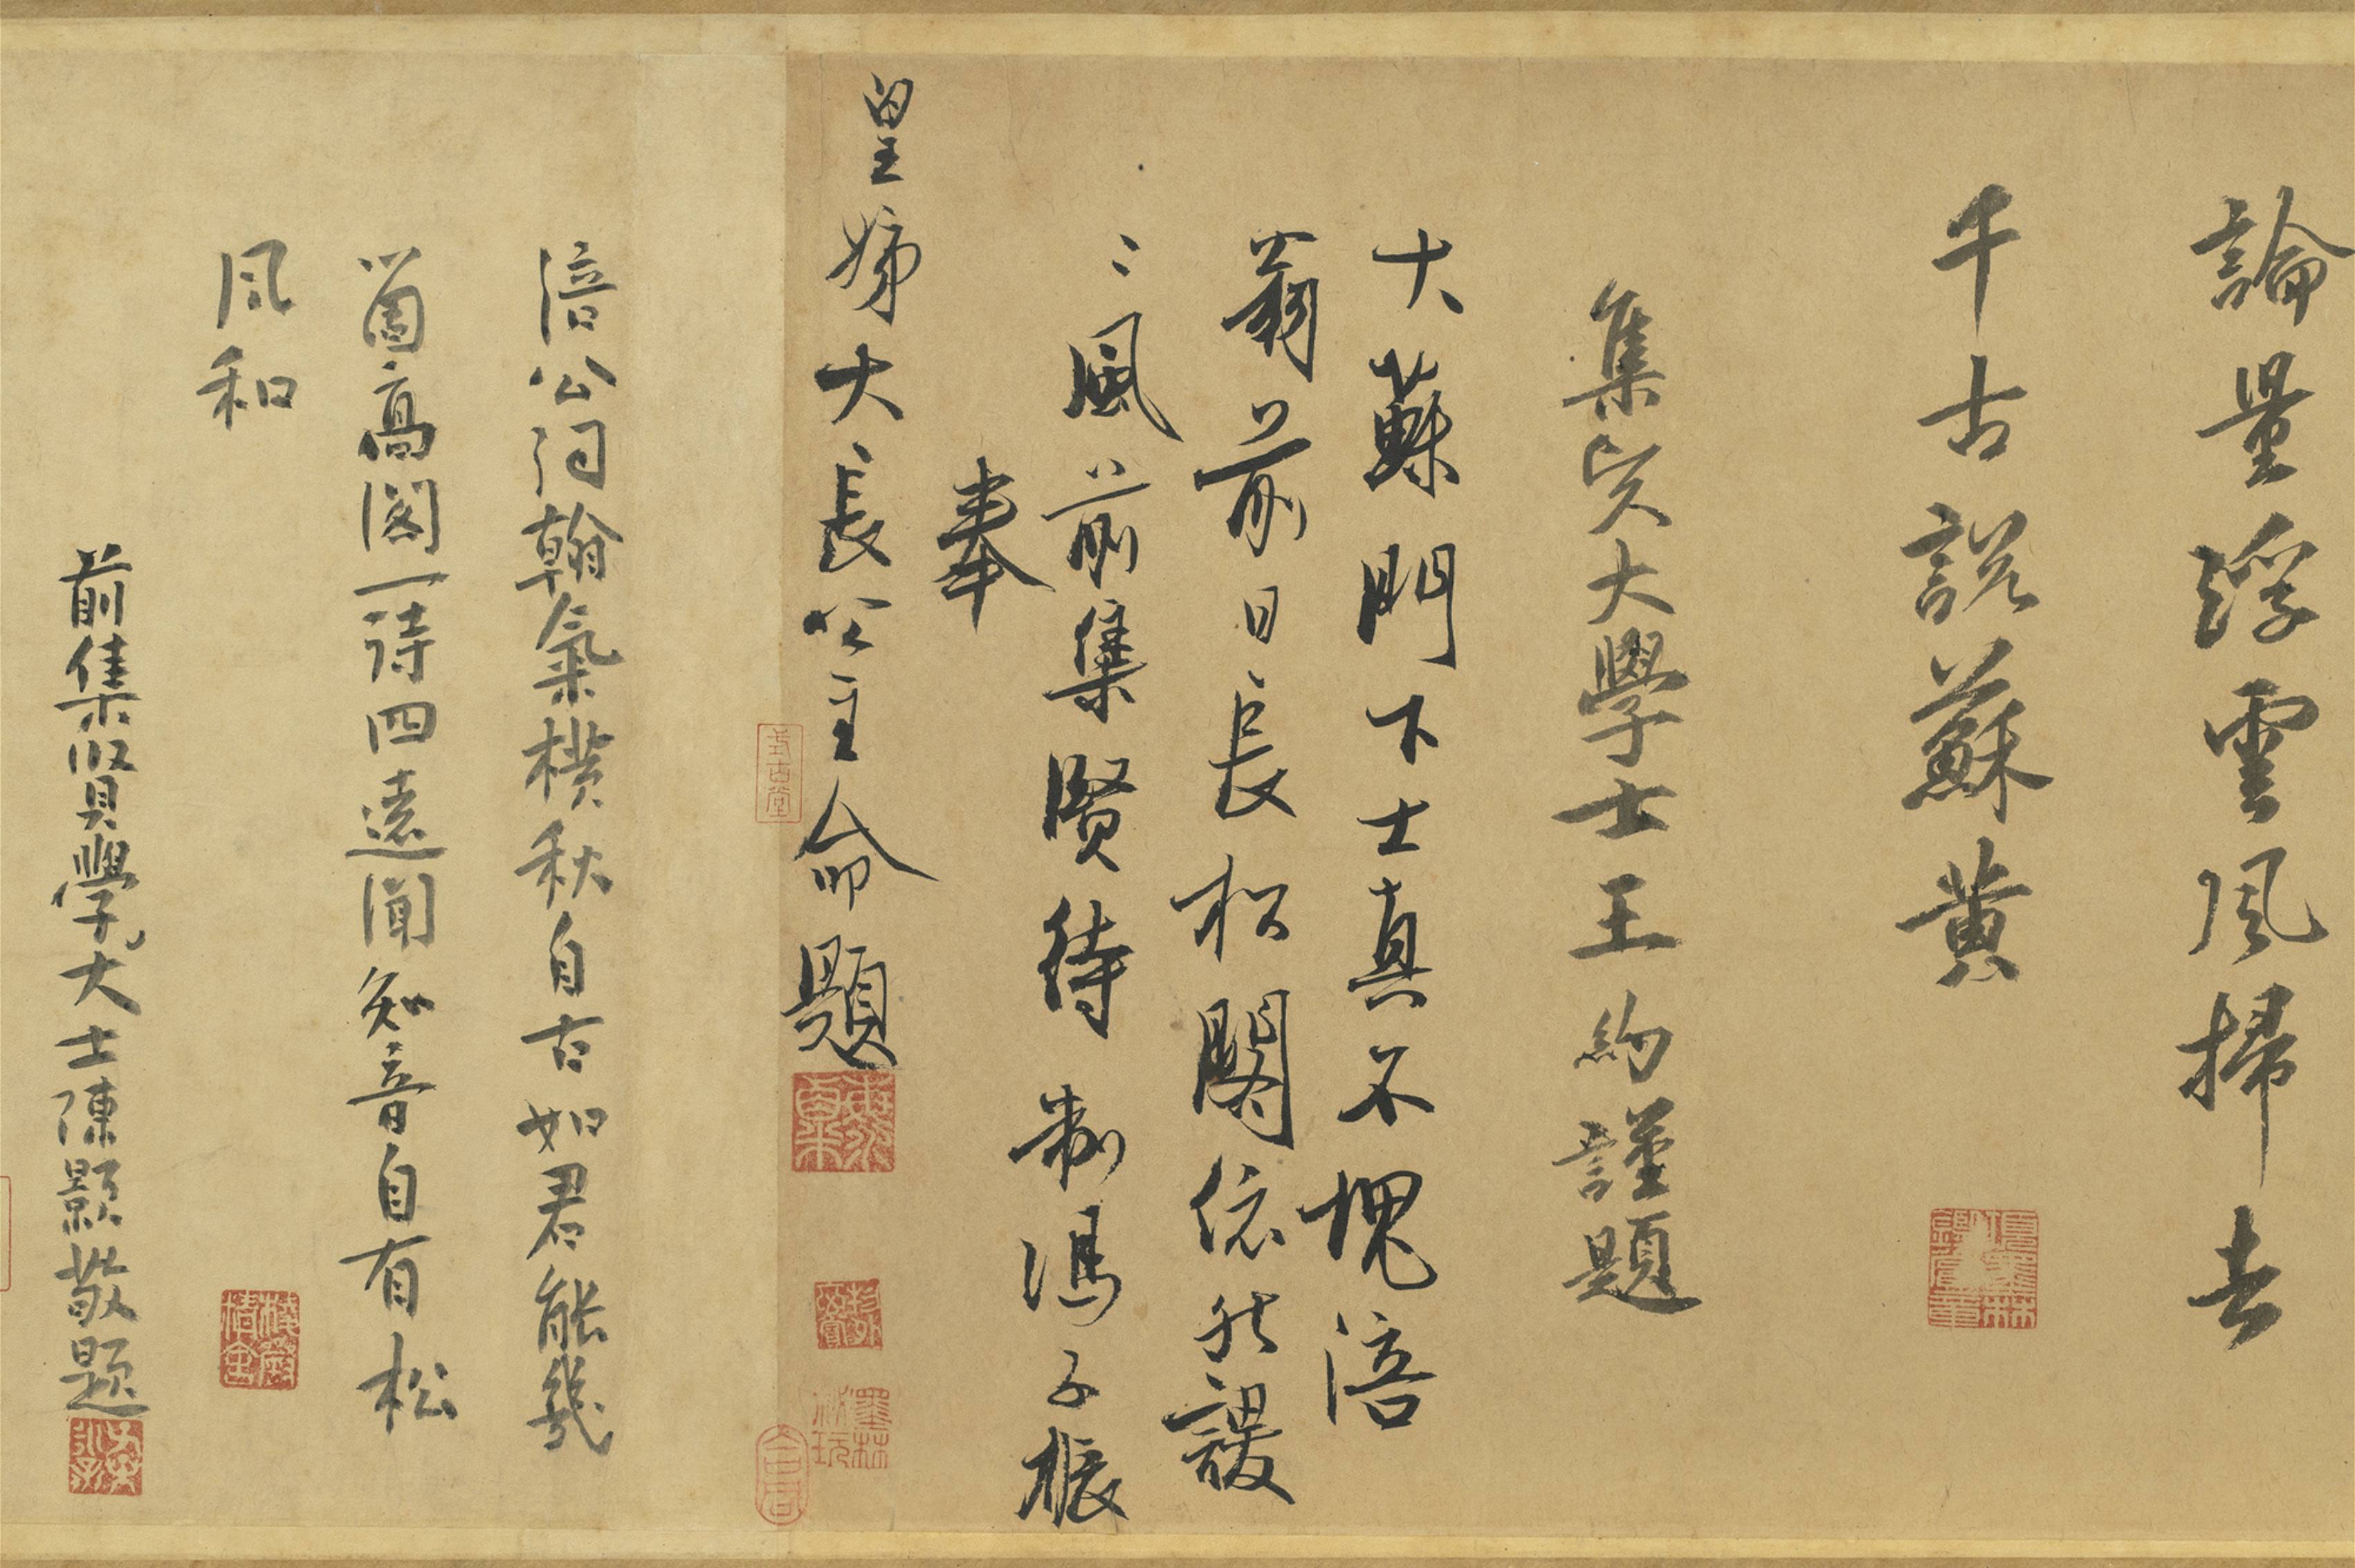 論量浮雲風掃去
千古說蘇黃
集賢大學士王約謹題
大蘇門下士真不愧涪
翁翁前日長松閣依然謖
謖風前集賢待制馮子振
奉
皇姊大長公主命題
涪公詞翰氣橫秋自古如君能幾
酋高閣一詩四遠聞知音自有松
風和
前集賢學大士陳顥敬題
式古堂